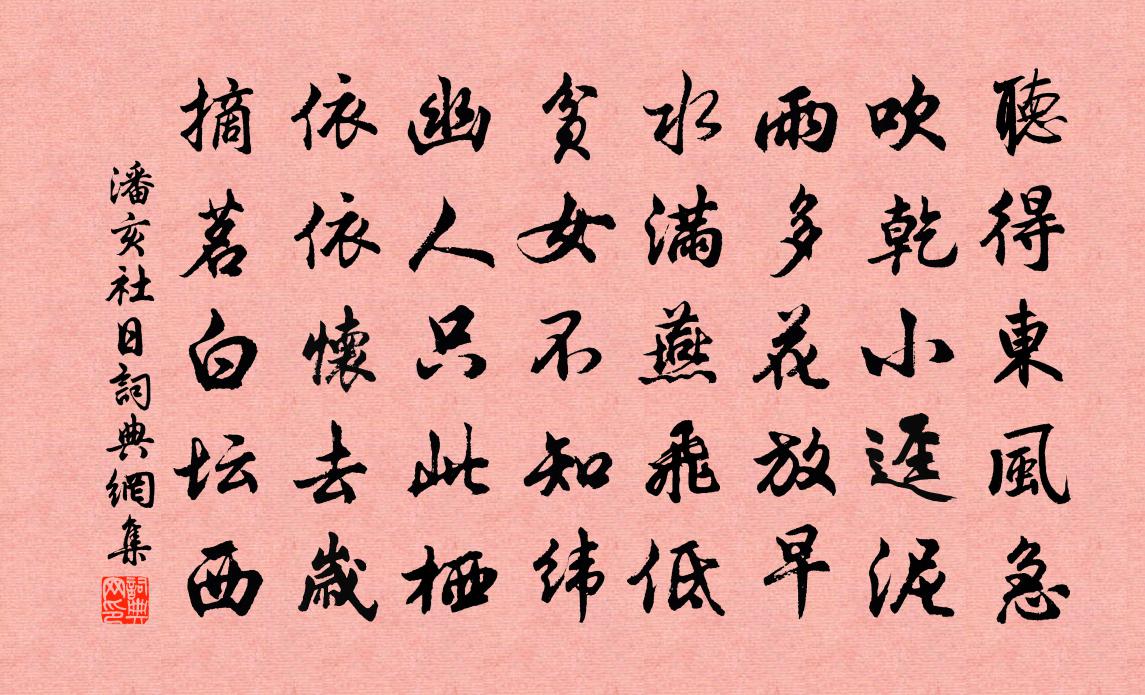 聽得東風急
吹乾小逕泥
雨多花放早
水滿燕飛低
貧女不知緯
幽人只此栖
依依懷去歲
摘茗白坛西
潘亥社日詞典網集
詞典网印